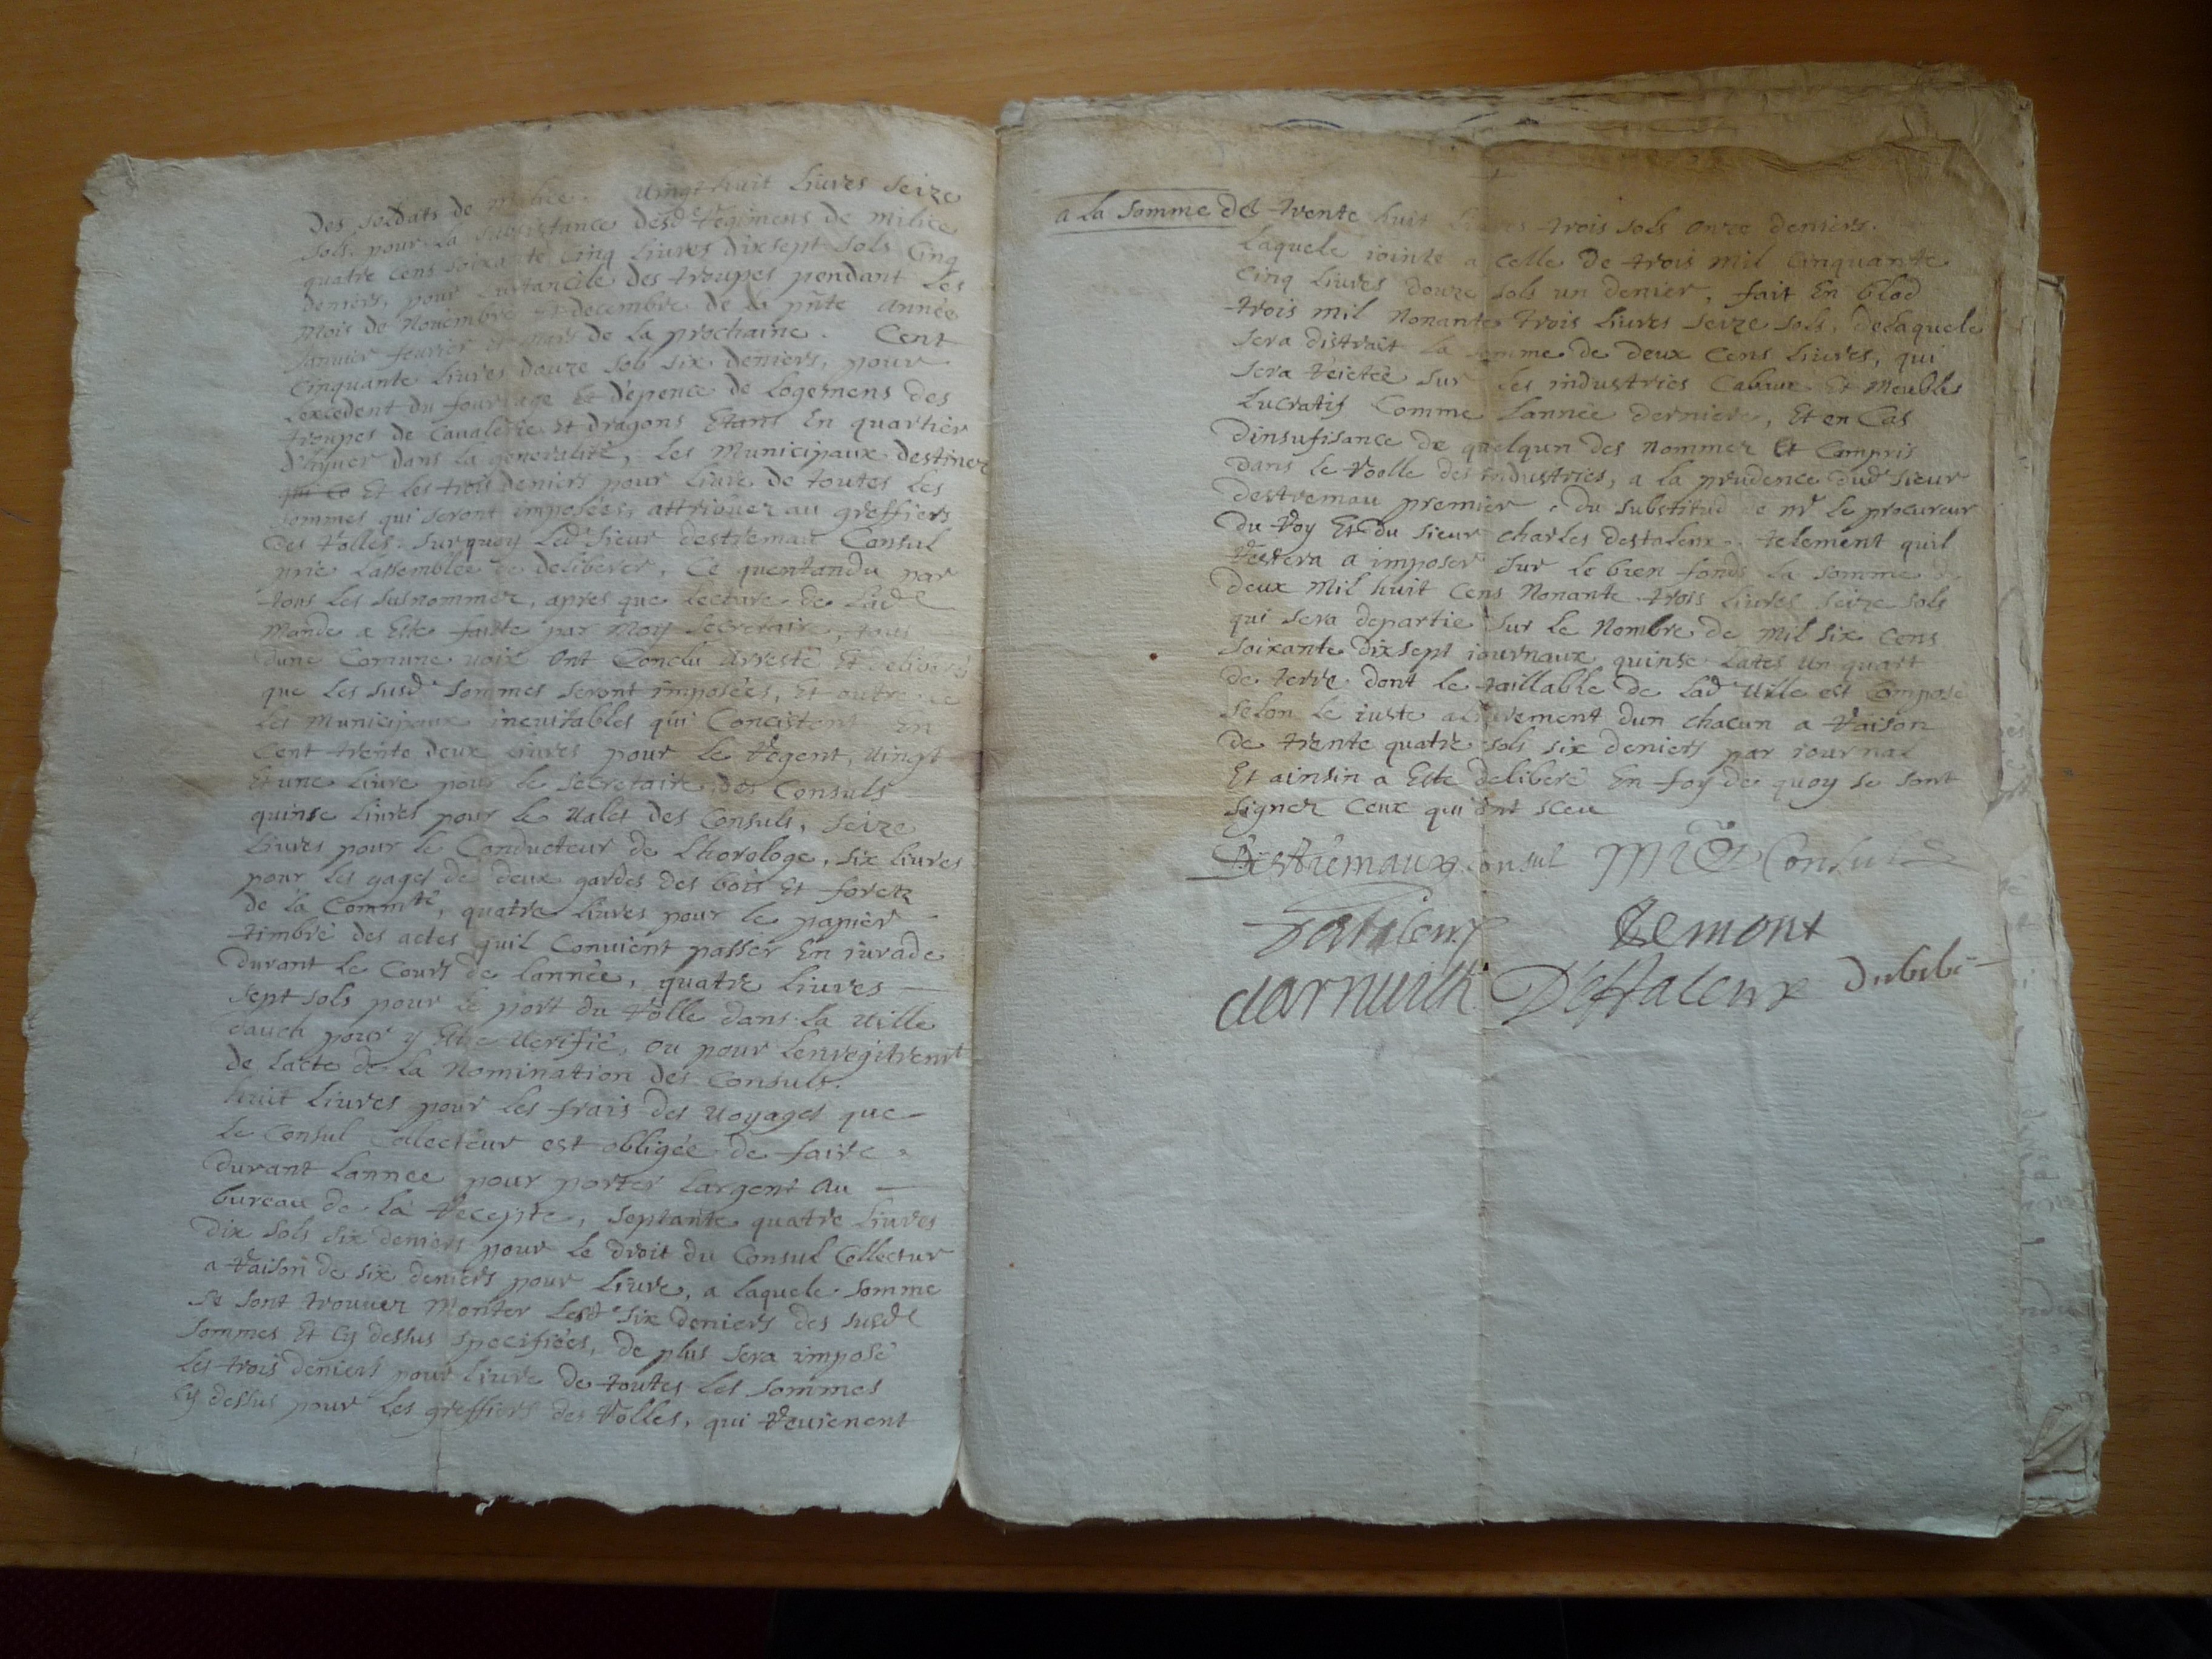 Des soldats de milice. Vingt huit Livres Seize
Sols. pour La subsistance desde Regimens de milice
quatre cens soixante Cinq Livres dixsept sols Cinq
deniers, pour Lustancile des troupes pendant Les
Mois de Novembre Et decembre de la pnte année
Janvier feurier et mars de la prochaine. Cent
Cinquante Livres douze sols six deniers, pour
Lexcedent du fourrage Et dépence de Logemens des
troupes de Caualerie Et dragons Etans En quartier
dhyuer dans La generalité, Les Municipaux destinez
qui ce Et les trois deniers pour Liure de toutes Les
sommes qui seront imposées, attribuez au greffiers
des Rolles. Sur quoy Led Sieur destremau Consul
prie Lassemblée de deliberer, Ce quentandu par
tous Les susnommez, apres que Lecture de Lade
Mande a Este faitte par Moy Secretaire, tous
dune Comune uoix ont Conclu arresté Et deliberé
que Les susde sommes seront imposées, Et outre ce
Les Municipaux ineuitables qui Concistent En
Cent trente deux Liures pour le Regent, Uingt
Et une Liure pour le secretaire des Consuls
quinse Liures pour le Ualet des Consuls, Seize
Liures pour le Conducteur de Lhorologe, six Liures
pour les gages de deux gardes des bois Et foretz
de la Commté, quatre Liures pour le papier
timbré des actes quil Conuient passer En iurade
durant le Cours de Lannée, quatre Liures
sept sols pour le port du Rolle dans la Uille
dauch pour y Etre Uerifié, ou pour Lenregitremt
de Lacte de la Nomination des Consuls.
huit Liures pour les frais des Uoyages que
le Consul Collecteur est obligée de faire
durant Lannee pour porter Largent au
bureau de la Recepte, septante quatre Liures
dix sols six deniers pour le droit du Consul Collectur
a Raison de six deniers pour Liure, a laquele somme
se sont trouuez Monter Lesd six deniers des susde
sommes Et cy dessus specifiées, de plus sera imposé
les trois deniers pour Liure de toutes les sommes
cy dessus pour les greffiers des Rolles, qui Reuienent
a la somme de trente huit Liures trois sols onze deniers.
Laquele iointe a celle de trois Mil Cinquante
Cinq Liures douze sols un denier, fait En blod
trois mil Nonante trois Liures seize sols, delaquele
sera distrait la somme de deux Cens Liures, qui
sera Reietée sur les industries Cabaux Et Meubles
Lucratifs Comme Lannée derniere, Et en Cas
dinsufisance de quelqun des Nommez Et Compris
dans le Roolle des industries, a la prudence dud Sieur
destremau premier, du substitud de Mr le procureur
du Roy Et du Sieur charles destaleux. telement quil
Restera a imposer sur le bien fonds la somme de
deux Mil huit Cens Nonante trois Liures seize sols
qui sera departie sur le Nombre de Mil six Cens
soixante dixsept iournaux quinse Lates un quart
de terre dont le taillable de Lade Uille est Composé
selon le iuste aliurement dun chacun a Raison
de trente quatre sols six deniers par iournal
Et ainsin a Este deliberé En foy de quoy se sont
signez Ceux qui ont sceu
Destremaux Consul Consul
Remont
Destaleux Dubibé